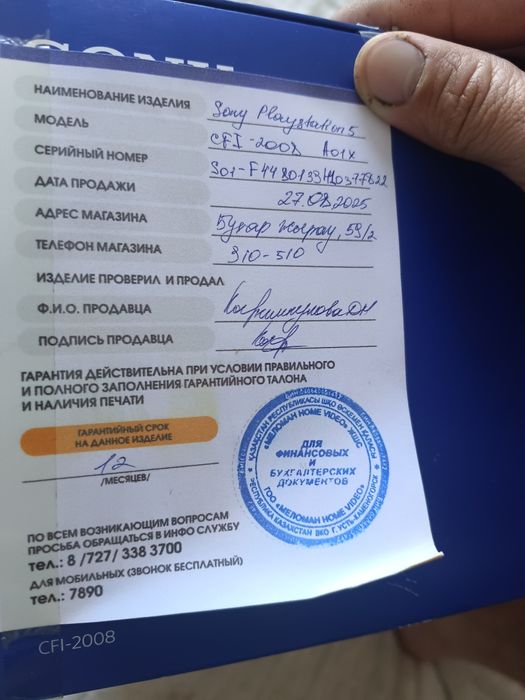 SONY
НАИМЕНОВАНИЕ ИЗДЕЛИЯ Sony PlayStation 5
МОДЕЛЬ CFI-2008 A01X
СЕРИЙНЫЙ НОМЕР
ДАТА ПРОДАЖИ 27.08.2025
АДРЕС МАГАЗИНА Бухар жырау, 59/2
ТЕЛЕФОН МАГАЗИНА 310-510
ИЗДЕЛИЕ ПРОВЕРИЛ И ПРОДАЛ
Ф.И.О. ПРОДАВЦА
ПОДПИСЬ ПРОДАВЦА
ГАРАНТИЯ ДЕЙСТВИТЕЛЬНА ПРИ УСЛОВИИ ПРАВИЛЬНОГО
И ПОЛНОГО ЗАПОЛНЕНИЯ ГАРАНТИЙНОГО ТАЛОНА
И НАЛИЧИЯ ПЕЧАТИ
ГАРАНТИЙНЫЙ СРОК
НА ДАННОЕ ИЗДЕЛИЕ
12
/МЕСЯЦЕВ/
ҚАЗАҚСТАН РЕСПУБЛИКАСЫ ШҚО ӨСКЕМЕН ҚАЛАСЫ
«МЕЛОМАН HOME VIDEO» ЖШС
ДЛЯ
ФИНАНСОВЫХ
И
БУХГАЛТЕРСКИХ
ДОКУМЕНТОВ
ТОО «МЕЛОМАН HOME VIDEO»
РЕСПУБЛИКА КАЗАХСТАН ВКО Г. УСТЬ-КАМЕНОГОРСК
ПО ВСЕМ ВОЗНИКАЮЩИМ ВОПРОСАМ
ПРОСЬБА ОБРАЩАТЬСЯ В ИНФО СЛУЖБУ
тел.: 8 /727/ 338 3700
ДЛЯ МОБИЛЬНЫХ (ЗВОНОК БЕСПЛАТНЫЙ)
тел.: 7890
CFI-2008